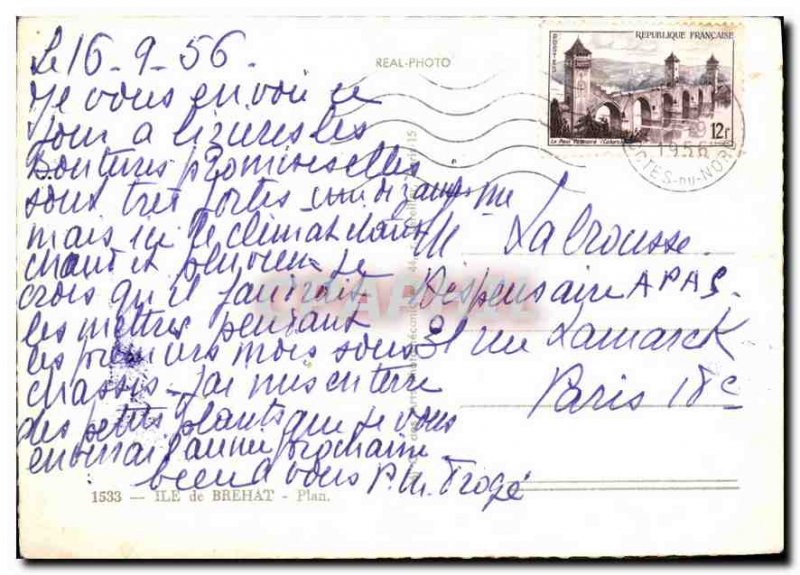 Le 16-9-56.
Je vous envoie ce
jour a les
Boutures promises elles
sont très fortes une dizaine
mais ici le climat étant
chaud et pluvieux je
crois qu'il faudrait
les mettres pendant
les premiers mois sous
chassis - J'ai mis en terre
des petits plants que je vous
enverrai l'année prochaine
bien a vous P.M. Frogé
1533 — ILE de BREHAT - Plan.
REAL-PHOTO
POSTES
REPUBLIQUE FRANÇAISE
12f
Le Pont Valentré (Cahors)
1956
CÔTES-DU-NORD
Me
Labrousse
Despensaire APAS.
31 rue Lamarck
Paris 18e